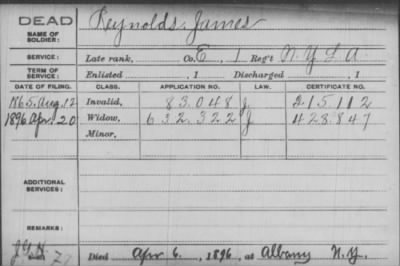 DEAD
NAME OF SOLDIER: Reynolds, James
SERVICE: Late rank, Co. E, 1 Reg't N.Y.L.A.
TERM OF SERVICE: Enlisted , 1 Discharged , 1
DATE OF FILING. CLASS. APPLICATION NO. LAW. CERTIFICATE NO.
1865, Aug. 12 Invalid, 83.048 J 215.112
1896 Apr. 20 Widow, 632.322 J 428.847
Minor,
ADDITIONAL SERVICES:
REMARKS:
Died Apr 6, 1896, at Albany N.Y.